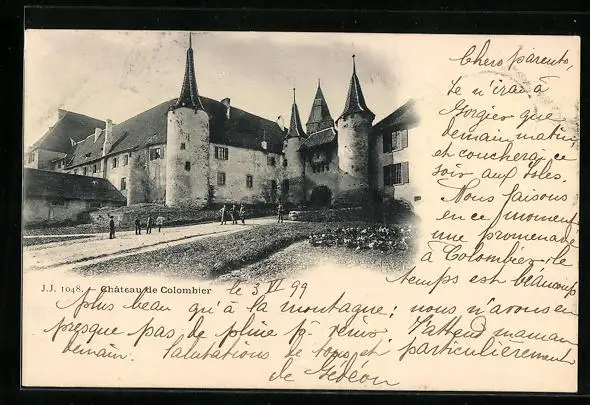 Chers parents,
Je n'irai à
Gorgier que
demain matin,
et coucherai ce
soir aux
Nous faisons
en ce moment
une promenade
à Colombier, le
temps est beaucoup
J.J. 1048. Château de Colombier
le 3 VI 99
plus beau qu'à la montagne; nous n'avons eu
presque pas de pluie pr. venir. J'attend maman
demain. Salutations de tous et particulièrement
de Gédéon